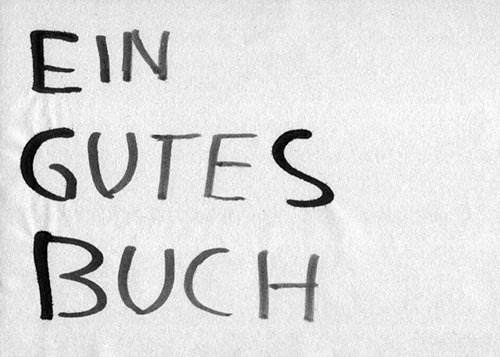 EIN
GUTES
BUCH